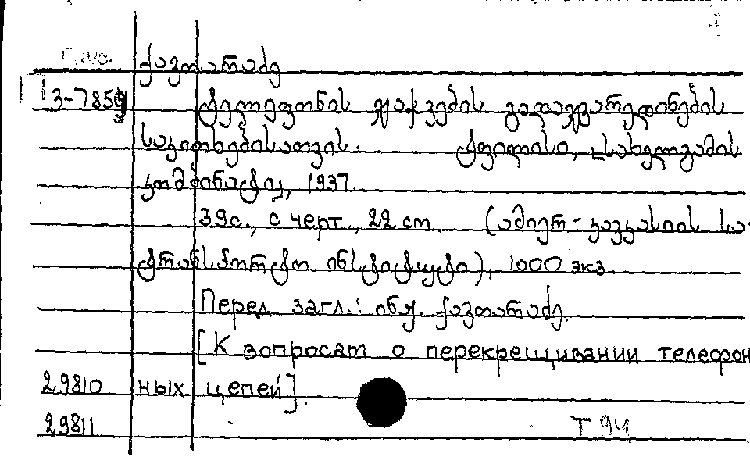 ქავთარაძე
3-7859 ტელეფონის ჯაჭვების გადაჯვარედინების
საკითხებისათვის. ტფილისი, [სახელგამის
კომბინატი], 1937.
39с., с черт., 22 cm (ამიერ-კავკასიის სა-
ტრანსპორტო ინსტიტუტი), 1000 экз.
Перед загл.: ინჟ. ქავთარაძე.
[К вопросам о перекрещивании телефон
29810 ных цепей].
29811 Т 94